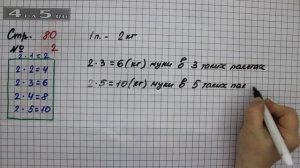 4 FOR 5.COM
Стр. 80
№ 2
2 · 1 = 2
2 · 2 = 4
2 · 3 = 6
2 · 4 = 8
2 · 5 = 10
1 п. - 2 кг
2 · 3 = 6 (кг) муки в 3 таких пакетах
2 · 5 = 10 (кг) муки в 5 таких пак